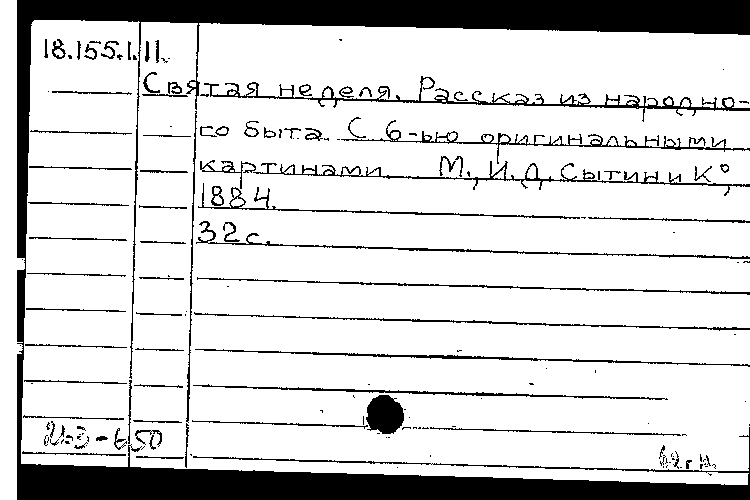 18.155.1.11.
Святая неделя. Рассказ из народно-
го быта. С 6-ью оригинальными
картинами. М., И. Д. Сытин и К°,
1884.
32 с.